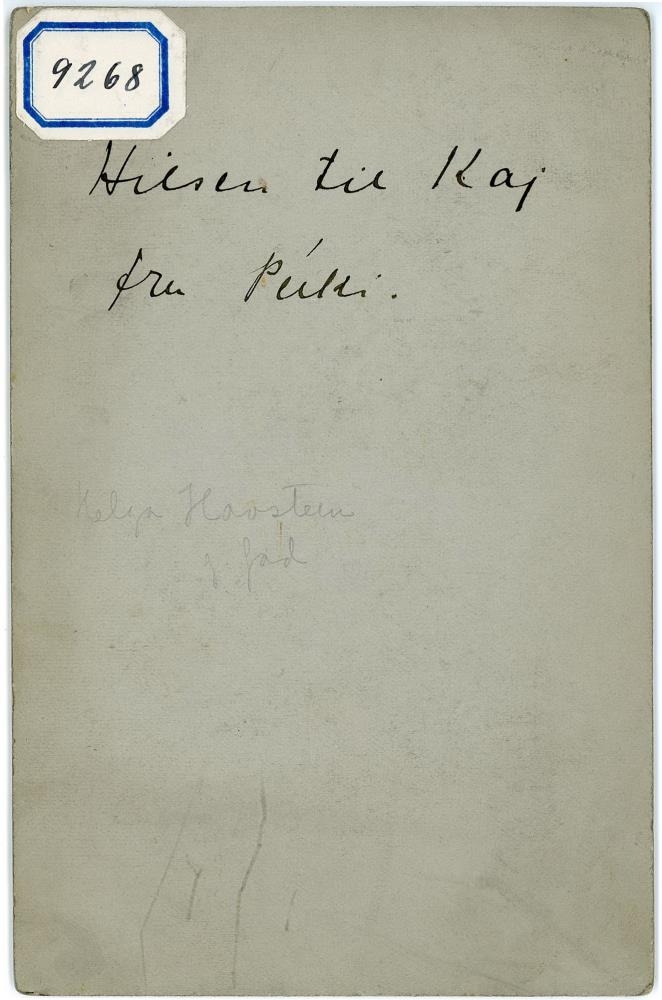 9268
Hilsen til Kaj
fra Puki.
Helga Havstein
g. Gad